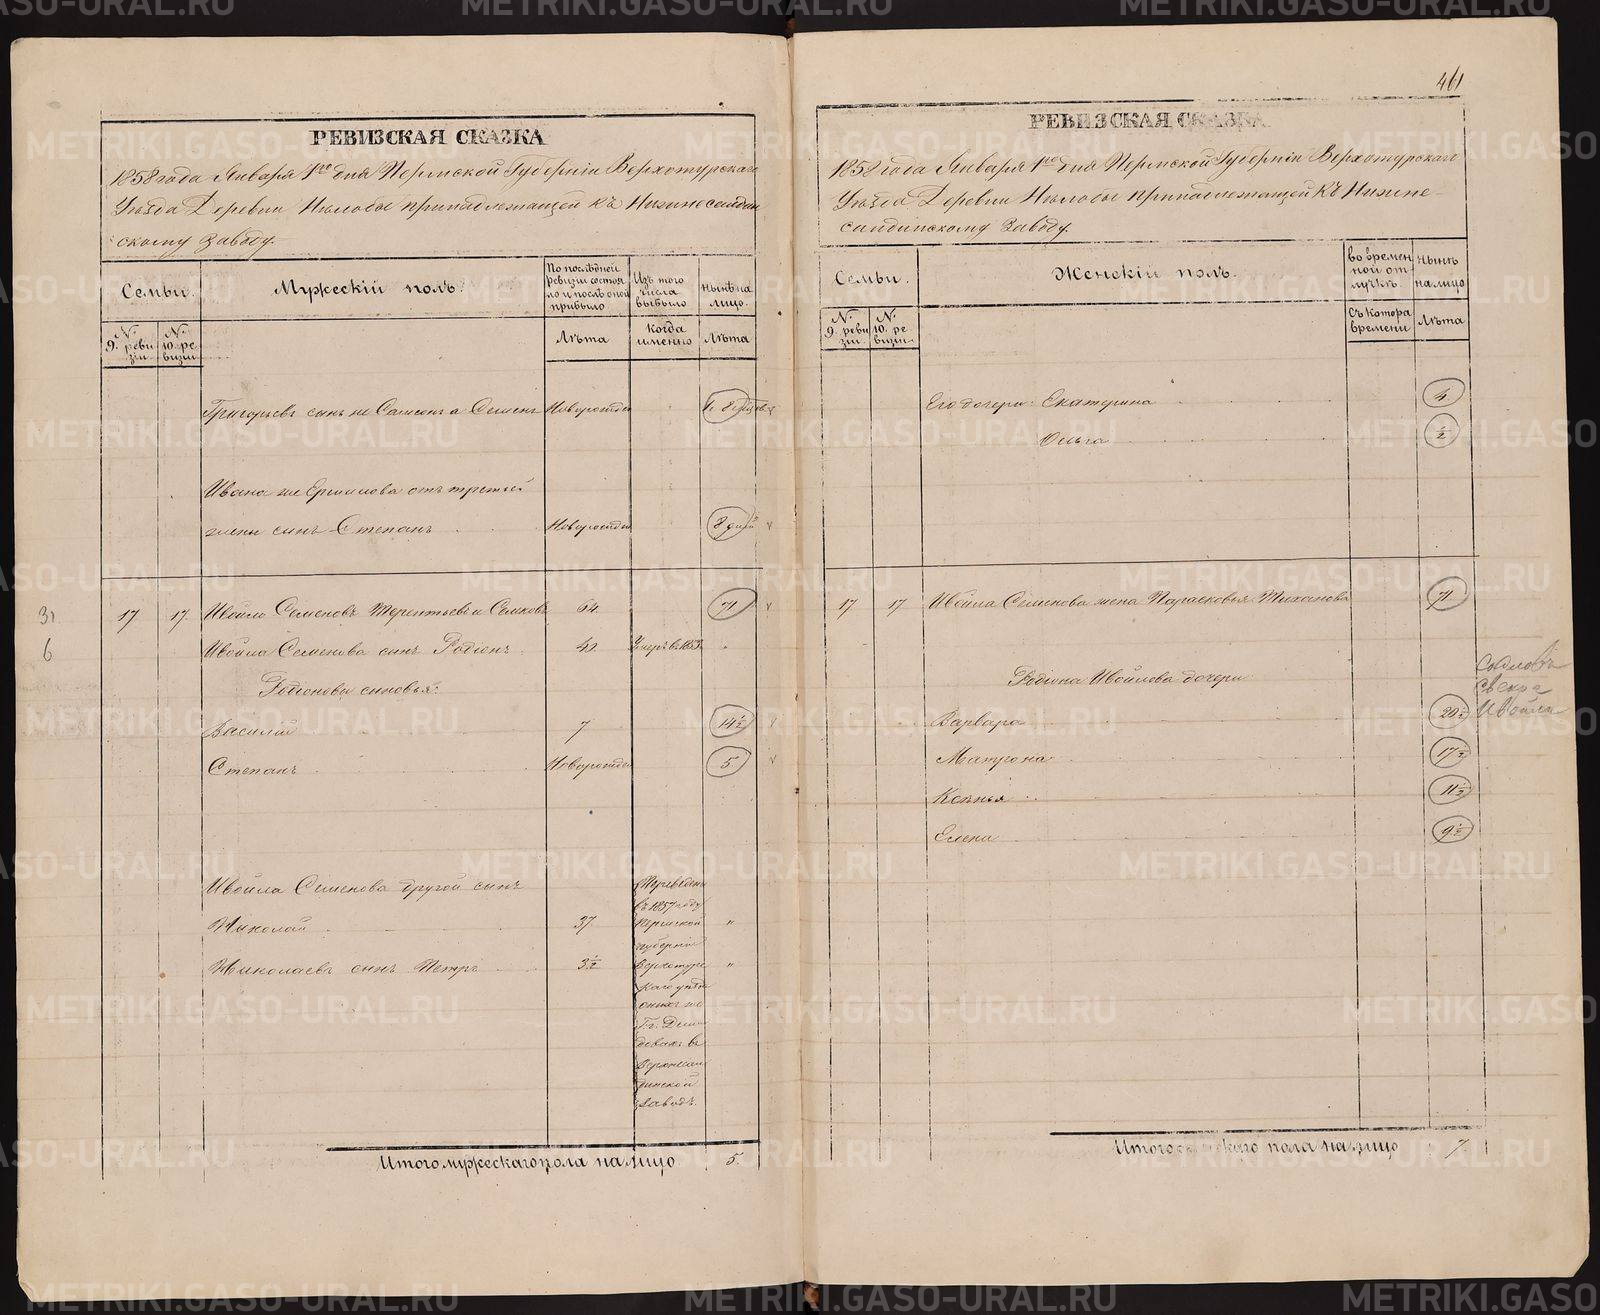 461
РЕВИЗСКАЯ СКАЗКА
1858 года Января 1го дня Пермской Губерніи Верхотурскаго
Уѣзда Деревни Нѣлобы принадлежащей къ Нижнесалдин
скому заводу.
Семьи.
Мужескій полъ.
По послѣдней ревизіи состоя ло и послѣ оной прибыло
Изъ того числа выбыло
нынѣ на лицо.
N. 9. реви зіи
N. 10. ре визіи
Лѣта
когда именно
Лѣта
Григорьевъ сынъ не Самсонъ а Семенъ Новорожден 8
Ивана же Ермилова отъ третьей
жены сынъ Степанъ Новорожден 8 дней
31 17 17. Ивойло Семеновъ Терентьевъ и 64. 71
6 Ивойла Семенова сынъ Родіонъ 40. Умеръ въ 1853
Родіоновы сыновья:
Василій 7 14½
Степанъ Новорожден 5
Ивойла Семенова другой сынъ
Николай 37. "
Николаевъ сынъ Петръ 3½ "
Переведенъ
въ 1857 году
Пермской
губерніи
Верхотурс
каго уѣзда
оныхъ же
Гг. Деми
довыхъ въ
Верхнесал
динской
заводъ.
Итого мужескаго пола на лицо 5.
РЕВИЗСКАЯ СКАЗКА
1858 года Января 1го дня Пермской Губерніи Верхотурскаго
Уѣзда Деревни Нѣлобы принадлежащей къ Нижне-
салдинскому заводу.
Семьи.
Женскій полъ.
во времен ной от лучкѣ.
нынѣ на лицо
N. 9. реви зіи
N. 10. ре визіи
Съ котора времени
Лѣта
Его дочери: Екатерина 4
Ольга ½
17 17 Ивойла Семенова жена Парасковья Тихонова 71
Родіона Ивойлова дочери
Варвара 20½
Матрона 17½
Ксенья 11½
Елена 9½
свекра
Ивойла
Итого женскаго пола на лицо 7.
METRIKI.GASO-URAL.RU